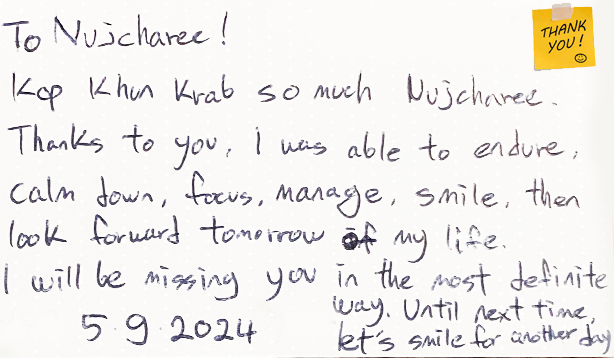 To Nujcharee!
THANK
YOU!
Kop Khun Krab so much Nujcharee.
Thanks to you, I was able to endure,
calm down, focus, manage, smile, then
look forward tomorrow of my life.
I will be missing you in the most definite
way. Until next time,
let's smile for another day
5.9.2024